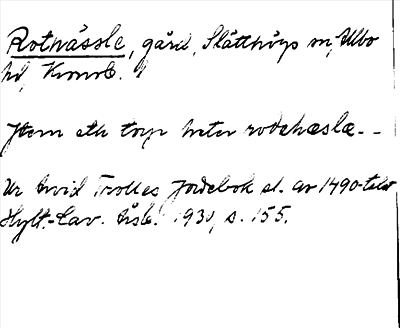 Rotnässle, gård, Slätthögs sn, Allbo
hd, Kronob.
Jtem eth torp heter rodehæslæ--
Ur Arvid Trolles jordebok sl. av 1490-talet
Hylt.-Cav. Årsb. 1930, s. 155.